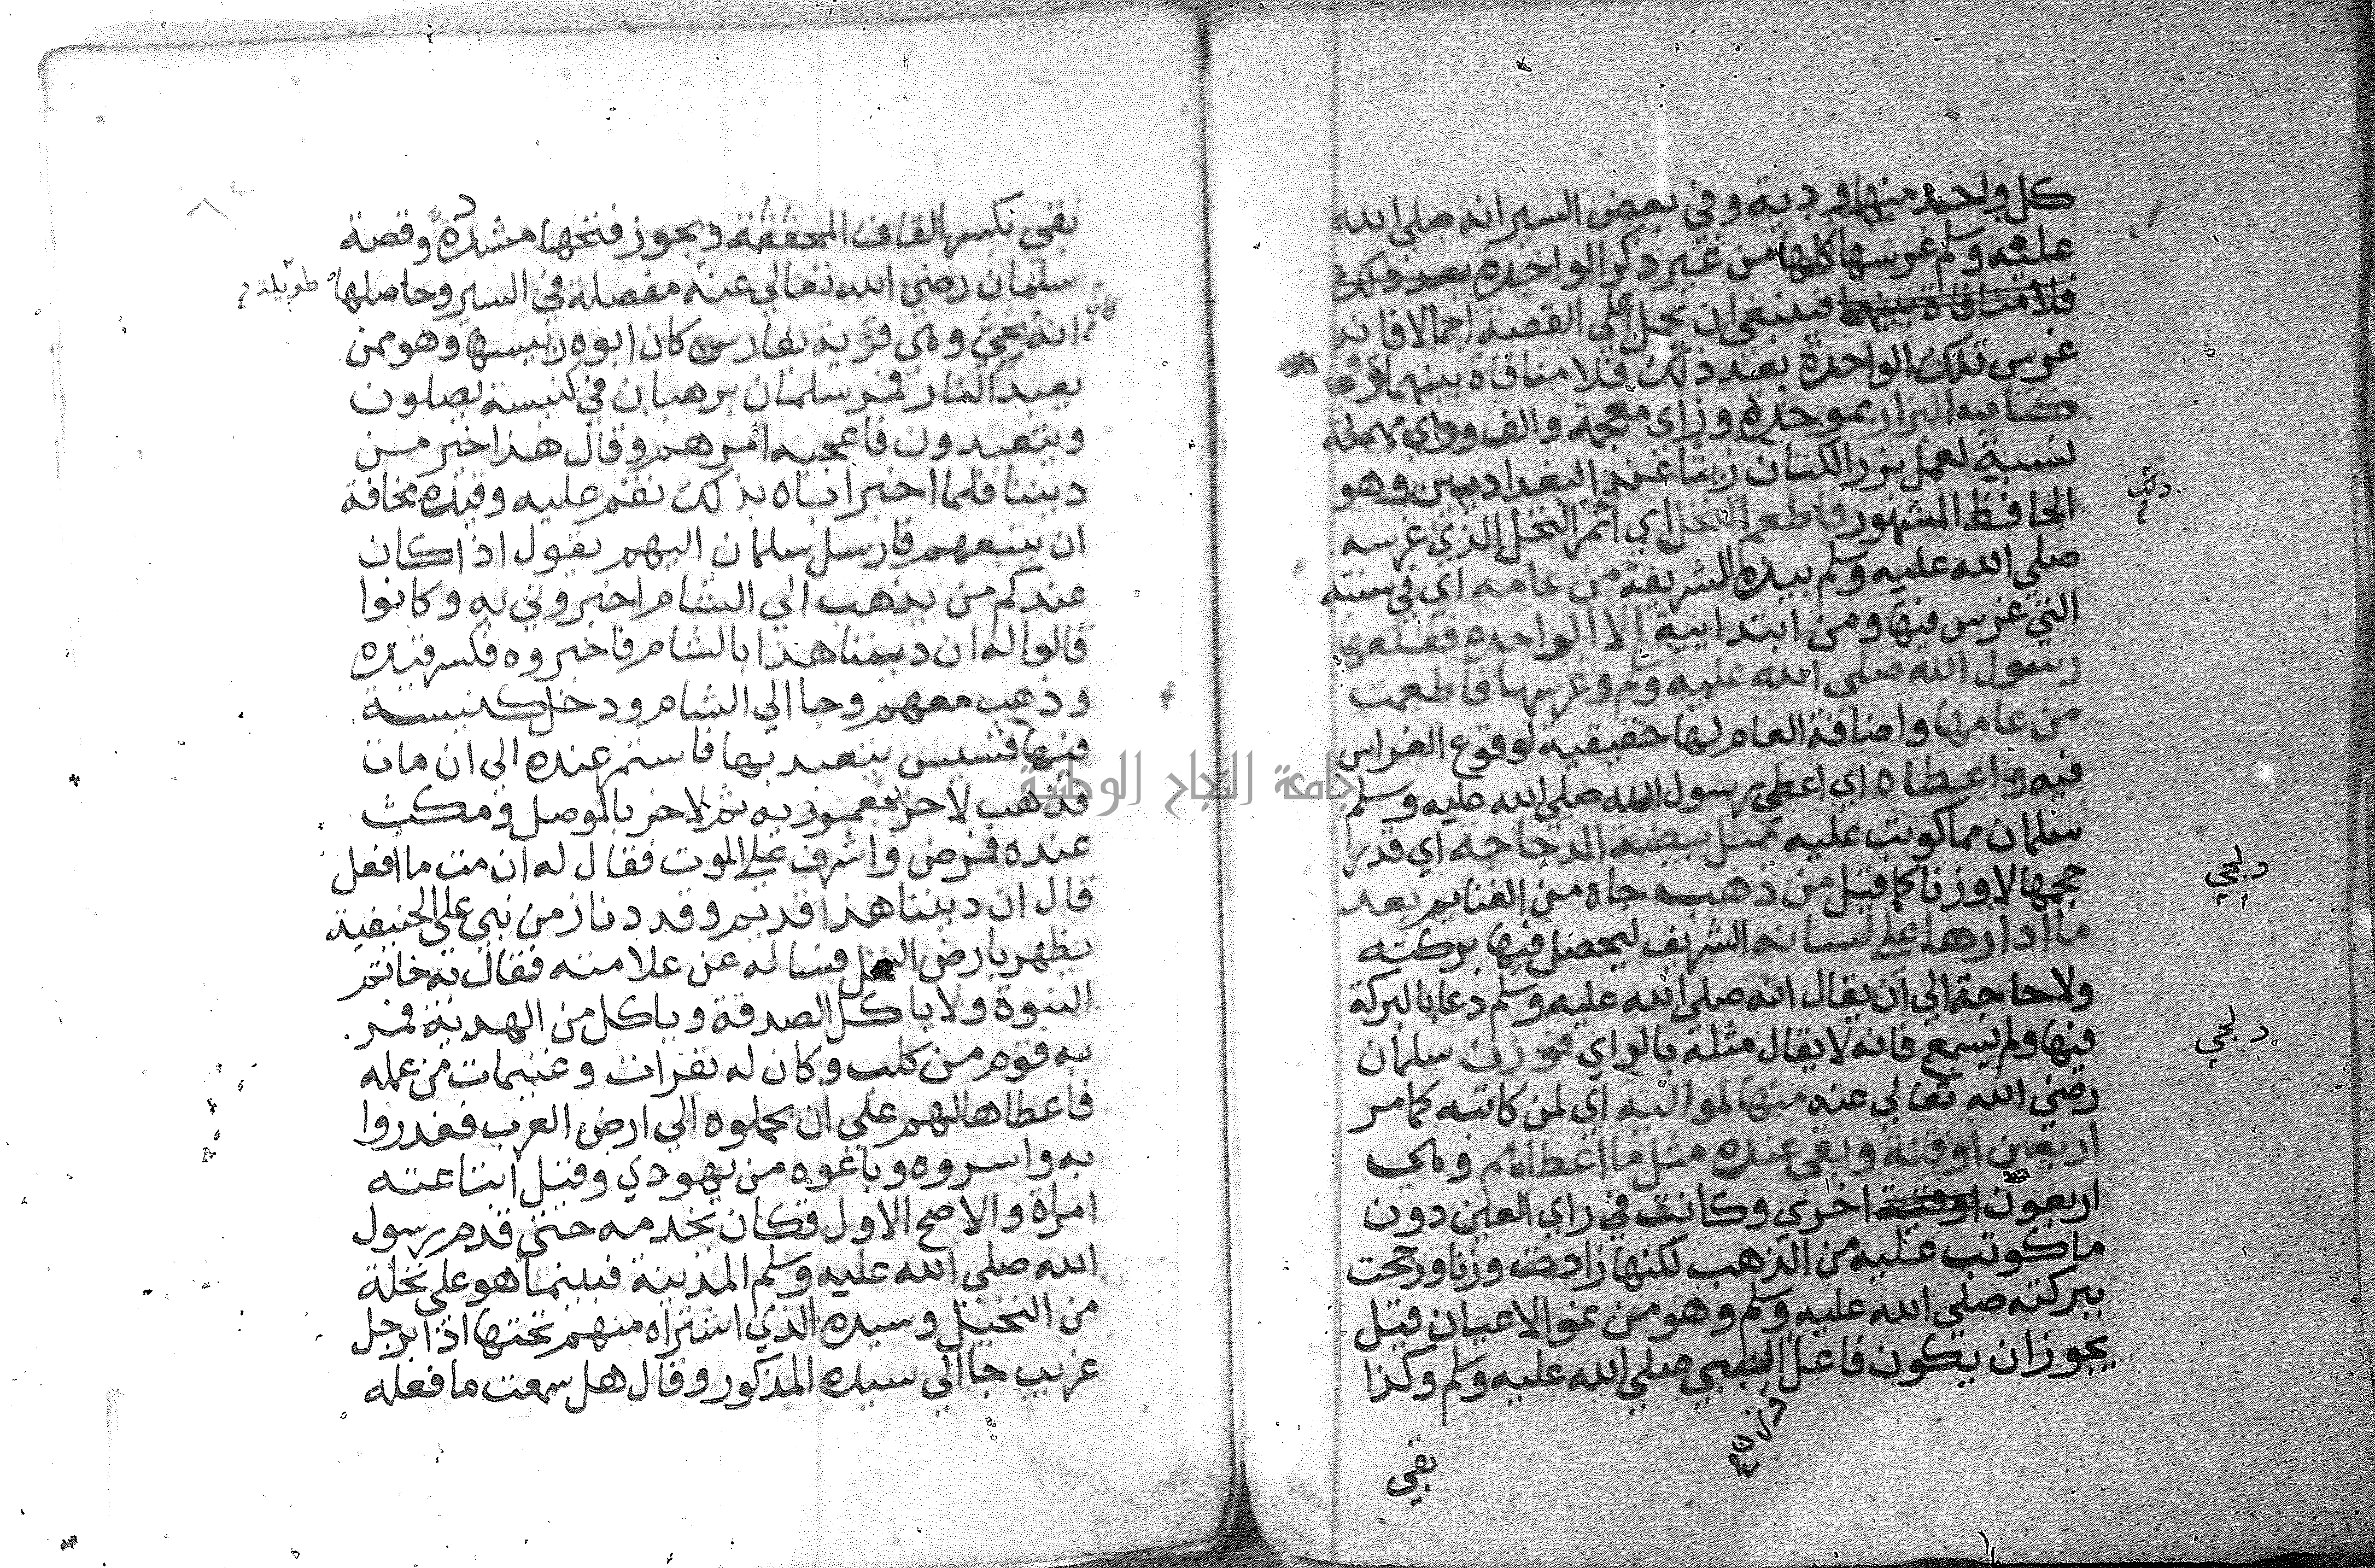 كل واحد منهما ودية وفي بعض السير انه صلى الله
عليه وسلم غرسها كلها من غير ذكر الواحدة بعد ذلك
فلا منافاة بينهما فينبغي ان تحمل علي القصة اجمالا فانه
غرس تلك الواحدة بعد ذلك فلا منافاة بينهما
كتابيه البزار بموحدة وزاي معجمة والف وراي مهملة
نسبة لعمل بزر الكتان زيتا عند البغداديين وهو
الحافظ المشهور فاطعم النخل اي اثمر النخل الذي غرسه
صلي الله عليه وسلم بيده الشريفة من عامه اي في سنته
التي غرس فيها ومن ابتدايية الا الواحدة فقلعها
رسول الله صلى الله عليه وسلم وغرسها فاطعمت
من عامها واضافة العام لها حقيقية لوقوع الغراس
فيه واعطاه اي اعطي رسول الله صلى الله عليه وسلم
سلمان مما كوتب عليه مثل بيضة الدجاجة اي قدر
حجمها لا وزنا كما قيل من ذهب جاه من الغنايم بعد
ما ادارها علي لسانه الشريف ليحصل فيها بركته
ولا حاجة الي ان يقال انه صلى الله عليه وسلم دعا بالبركة
فيها ولم يسمع فانه لا يقال مثله بالراي فوزن سلمان
رضي الله تعالي عنه منها لمواليه اي لمن كاتبه كما مر
اربعين اوقية وبقي عنده مثل ما اعطاهم وهي
اربعون اوقية اخري وكانت في راي العين دون
ما كوتب عليه من الذهب لكنها زادت وزنا ورجحت
ببركته صلي الله عليه وسلم وهو من نمو الاعيان قيل
يجوز ان يكون فاعل النبي صلي الله عليه وسلم وكذا
بقي
دلجي
دلجي
بقي بكسر القاف المخففة ويجوز فتحها مشددة وقصة
سلمان رضي الله تعالي عنه مفصلة في السير وحاصلها طويلة
انه كان بجي وهي قرية بفارس كان ابوه رئيسها وهو ممن
يعبد النار فمر سلمان برهبان في كنيسة يصلون
ويتعبدون فاعجبه امرهم وقال هذا خير من
ديننا فلما اخبر اباه بذلك نقم عليه وقيده مخافة
ان يتبعهم فارسل سلمان اليهم يقول اذا كان
عندكم من يذهب الي الشام اخبروني به وكانوا
قالوا له ان ديننا هذا بالشام فاخبروه فكسر قيده
وذهب معهم وجا الي الشام ودخل كنيسة
فيها قسيس يتعبد بها فاستمر عنده الي ان مات
فذهب لاخر بعمورية ثم لاخر بالموصل ومكث
عنده فمرض واشرف علي الموت فقال له ان مت ما افعل
قال ان ديننا هذا قديم وقد دنا زمن نبي علي الحنيفية
يظهر بارض النخل فساله عن علامته فقال به خاتم
النبوة ولا ياكل الصدقة وياكل من الهدية فمر
به قوم من كلب وكان له بقرات وغنيمات من عمله
فاعطاها لهم علي ان يحملوه الي ارض العرب فغدروا
به واسروه وباعوه من يهودي وقيل ابتاعته
امراة والاصح الاول فكان يخدمه حتي قدم رسول
الله صلى الله عليه وسلم المدينة فبينما هو علي نخلة
من النخيل وسيده الذي اشتراه منهم تحتها اذا برجل
غريب جا الي سيده المذكور وقال هل سمعت ما فعله
جامعة النجاح الوطنية